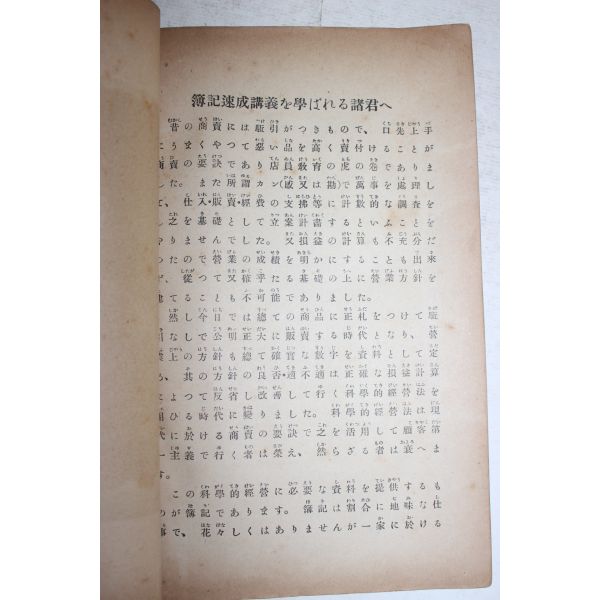 簿記速成講義を學ばれる諸君へ
昔の商賣には駈引がつきもので、口先上手
にうまくやつて惡い品を高く賣付けること
商賣の要訣であり店員敎育の虎の巻でありま
した。また所謂カン(感又は勘)で萬事を處理し
て、仕入・販賣・經費の支拂等に計數的な調査を
之を基礎として立案計畫するといふことを
やりませんでした。又損益の計算にも不充分だ
つたので營業の成績を明かにすることも出來
ず、從つて又確乎たる基礎の上に營業方針を
建てることも不可能でありました。
然し今日では總ての商品に正札をつけて、駈
引なしで公明正大に販賣する時代となり、營
業上の方針も總て確實な數字を資料として定
め、其の方針の良否・適不適は正確な損益計算
によつて反省し改善し行く科學的經營法を
用ひる時代に變りました。科學的經營法は現
代に於ける商賣の要訣で之を活用して顧客
主義で行く者は榮え、然らざる者は衰へま
す。
この科學的經營に必要な資料を提供するも
のが簿記であります。簿記は割合に地味な仕
事で、花々しくはありませんが一家に於ける